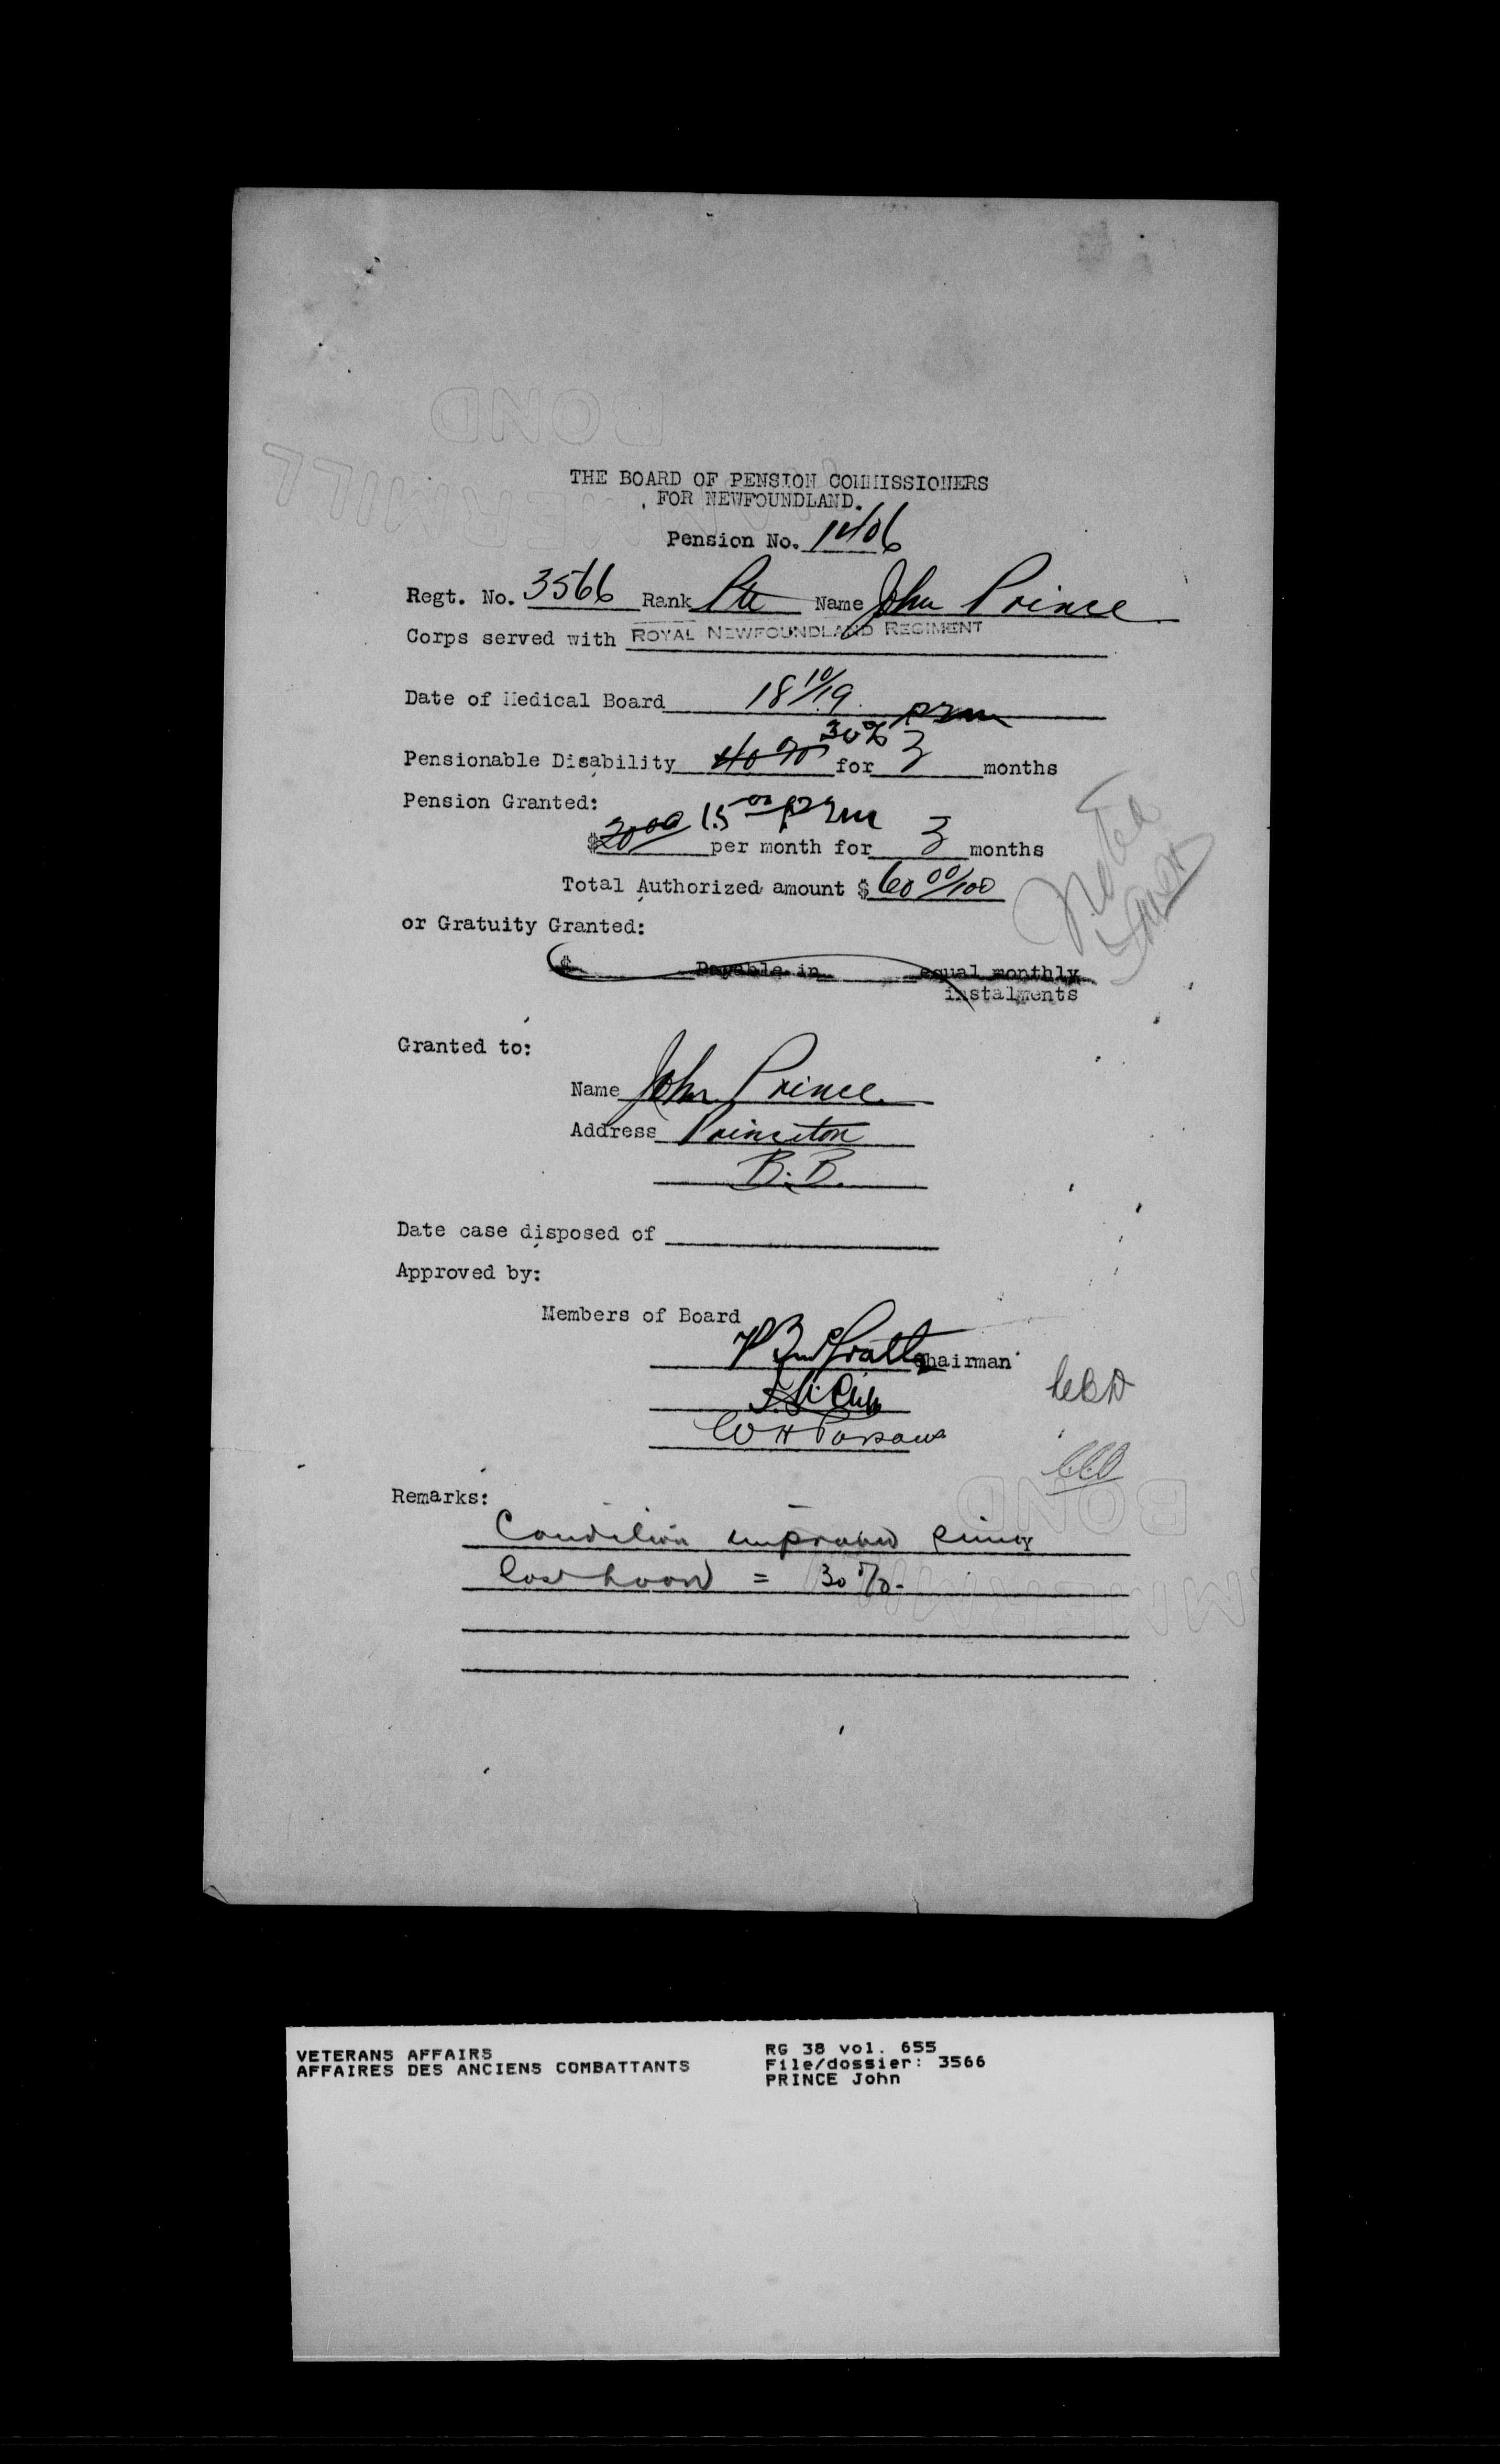 THE BOARD OF PENSION COMMISSIONERS
FOR NEWFOUNDLAND.
Pension No. 1406
Regt. No. 3566 Rank Pte Name John Prince
Corps served with ROYAL NEWFOUNDLAND REGIMENT
Date of Medical Board 18 10/19
Pensionable Disability 40% 30% for 3 months
Pension Granted:
$20.00 15 00 per month for 3 months
Total Authorized amount $ 60 00/100
or Gratuity Granted:
$ Payable in equal monthly
instalments
Noted
Granted to:
Name John Prince
Address Princeton
B.B.
Date case disposed of
Approved by:
Members of Board
Chairman
W H Parsons
Remarks:
Condition improved since
last board = 30%.
BOND
HAMMERMILL
BOND
HAMMERMILL
VETERANS AFFAIRS
AFFAIRES DES ANCIENS COMBATTANTS
RG 38 vol. 655
File/dossier: 3566
PRINCE John